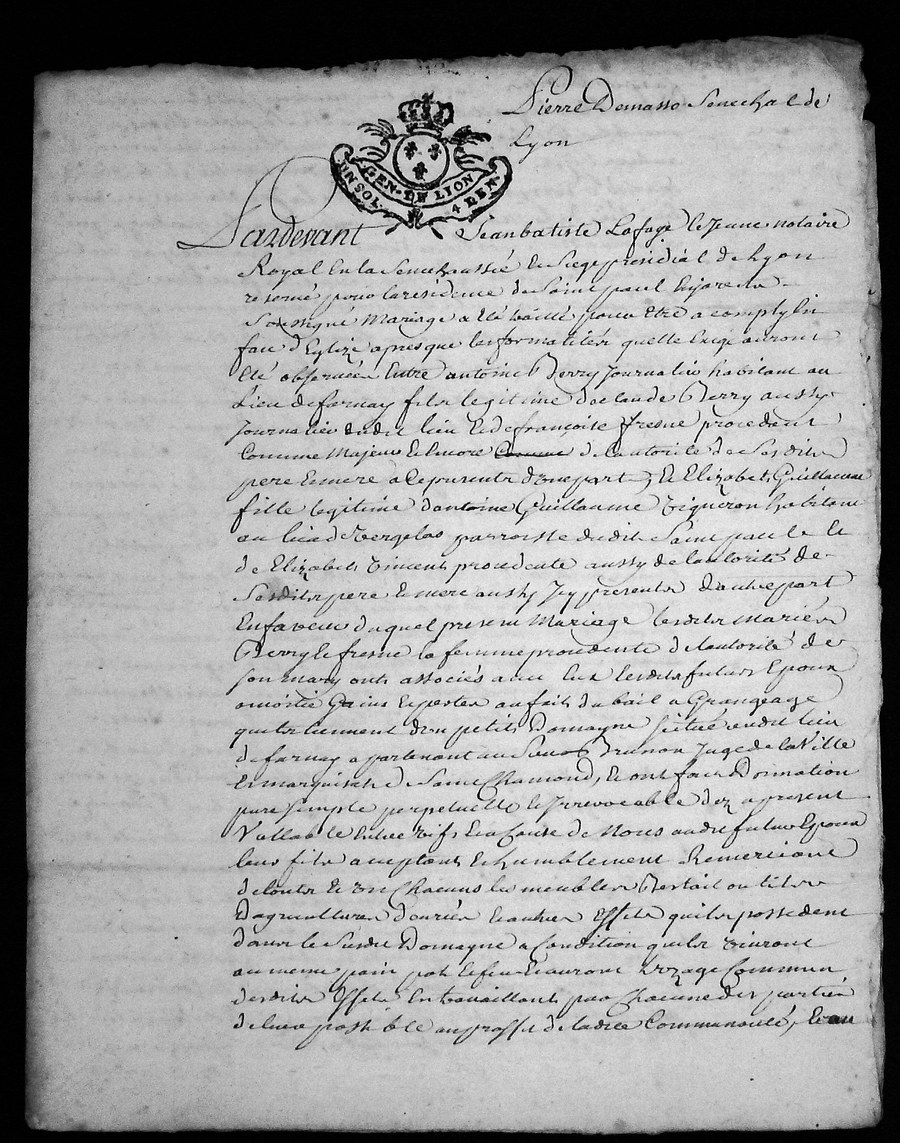 Pierre Demasso Senechal de
Lyon
GEN. DE LION
UN SOL. 4 DEN.
Pardevant Jean batiste Lafage le Jeune notaire
Royal En la Senechaussée et Siege presidial de Lyon
reservé pour la residence de Saint paul Enjarest
Sousigné Mariage a eté traitté pour Etre acomply En
face d'Eglize apres que les formalités quelle Exige auront
Eté observées Entre antoine Berry Journalier habitant au
Lieu de farnay fils legitime de claude Berry aussy
Journalier dudit lieu et de françoise fresne procedant
Comme Majeur et Encore Comme de l'autorité de Sesdits
pere et mere a ce presents d'une part, et Elizabets Guillaume
fille legitime d'antoine Guillaume Vigneron habitant
au lieu de Vergelas parroisse dudit Saint paul et
de Elizabets Vincent procedante aussy de l'autorité de
Sesdits pere et mere aussy Icy presents d'autre part
En faveur duquel present Mariage lesdits Mariés
Berry et fresne la femme procedante de l'autorité de
Son mary ont associés avec Eux lesdits futurs Epoux
a moitié Gains et pertes au fait du bail a Grangeage
quils tiennent d'un petit Domayne Scitué audit lieu
de farnay apartenant au Sieur Brunon Juge de la Ville
et marquisat de Saint Chamond, et ont fait Donnation
pure Simple perpetuelle et Irrevocable dez apresent
Vallable Entre vifs Et a Cause de Noces audit futur Epoux
leur fils aceptant et humblement Remerciant
de toutes et un Chacuns les meubles Bestail outils
d'agriculture denrées Et autres Effets quils possedent
dans le Susdit Domayne a Condition quils vivront
au meme pain pot et feu Et auront L'uzage Commun
desdits Effets En travaillants par Chacune des parties
de leur possible au proffit de ladite Communauté, Et au